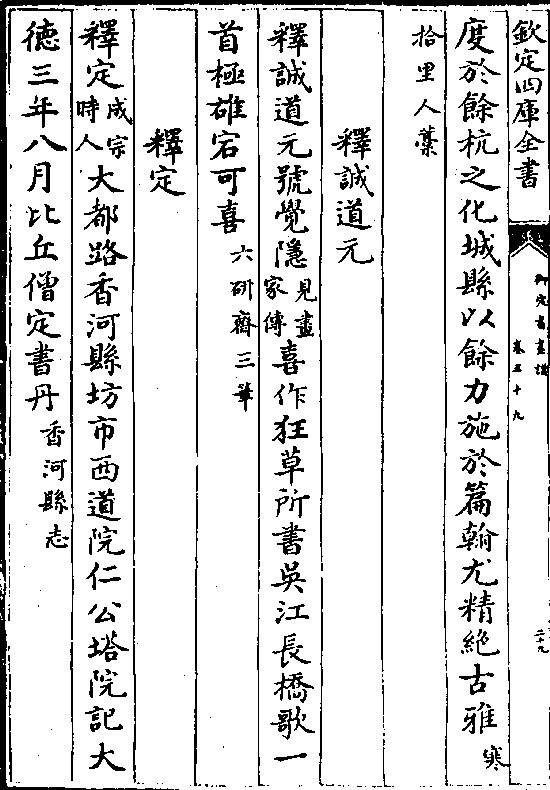 欽定四庫全書
御定書畫譜
卷五十九
二十九
度於餘杭之化城縣以餘力施於篇翰尤精絶古雅寒
拾里人藁
釋誠道元
釋誠道元號覺隱見畫家傳喜作狂草所書吳江長橋歌一
首極雄宕可喜六研齋三筆
釋定
釋定成宗時人大都路香河縣坊市西道院仁公塔院記大
徳三年八月比丘僧定書丹香河縣志